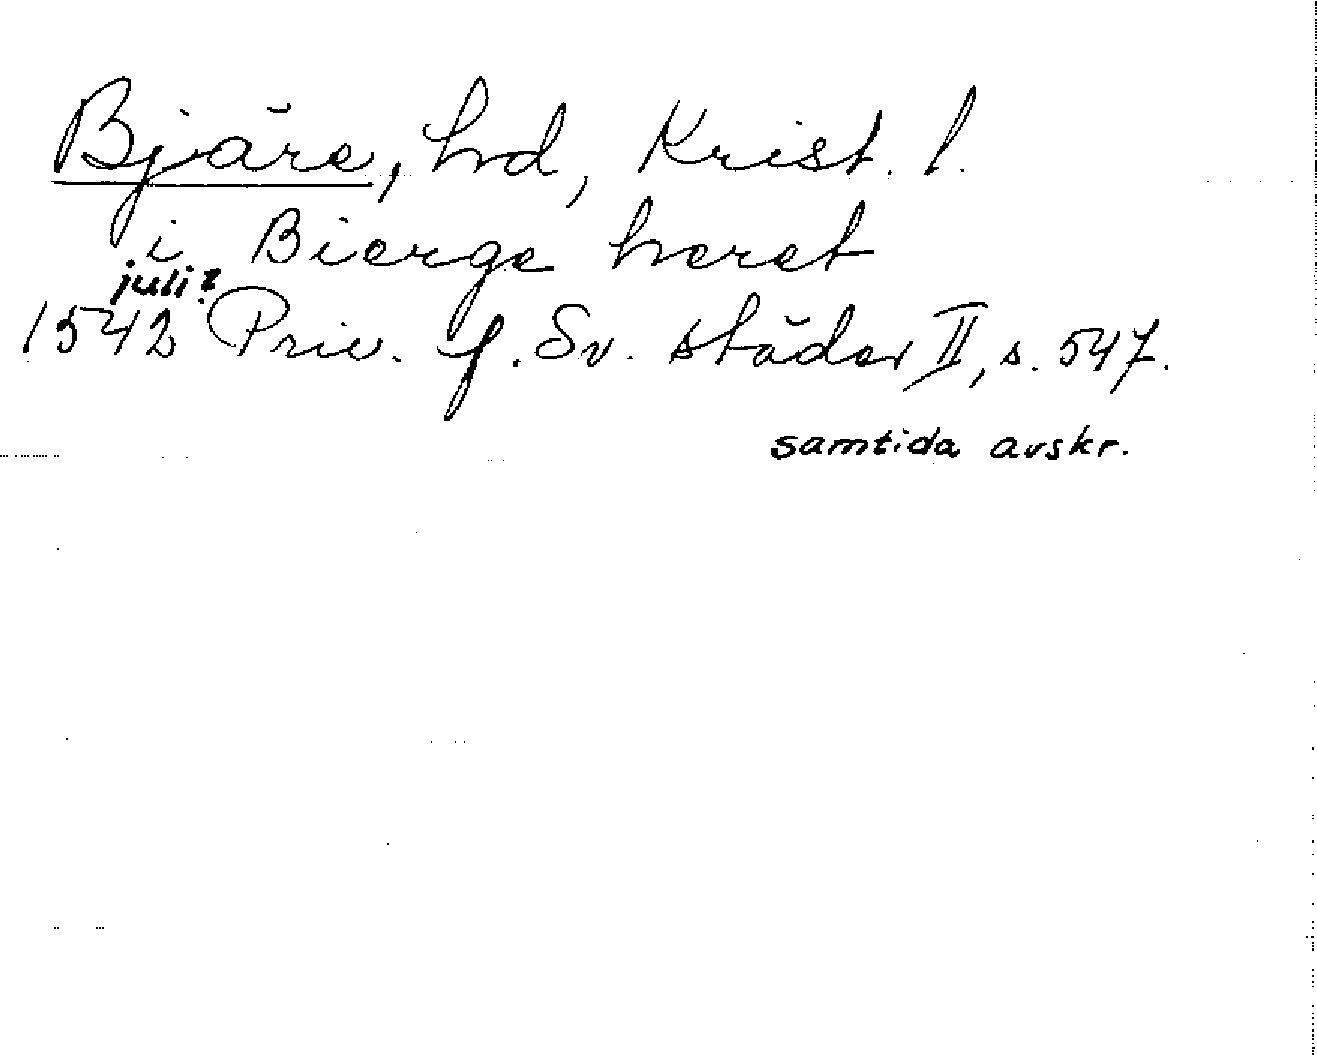 Bjäre, hd, Krist. l.
i Bierge heret
juli?
1542 Priv. f. Sv. städer II, s. 547.
samtida avskr.